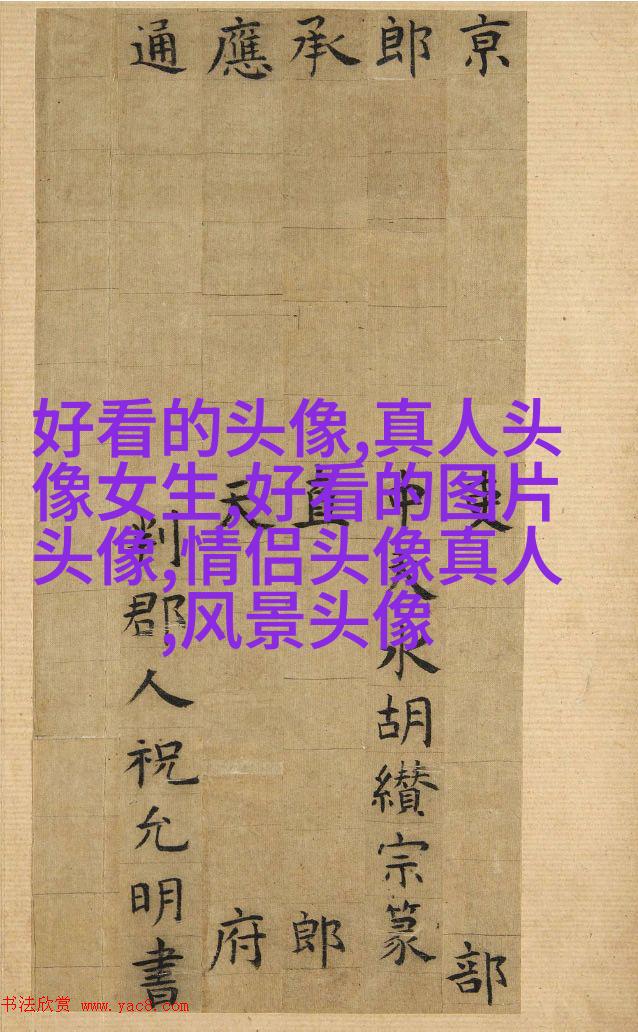 京吏部
郎中天水胡纘宗篆
承直郎
應天府
通判郡人祝允明書
好看的头像,真人头
像女生,好看的图片
头像,情侣头像真人
,风景头像
书法欣赏 www.yac8.com